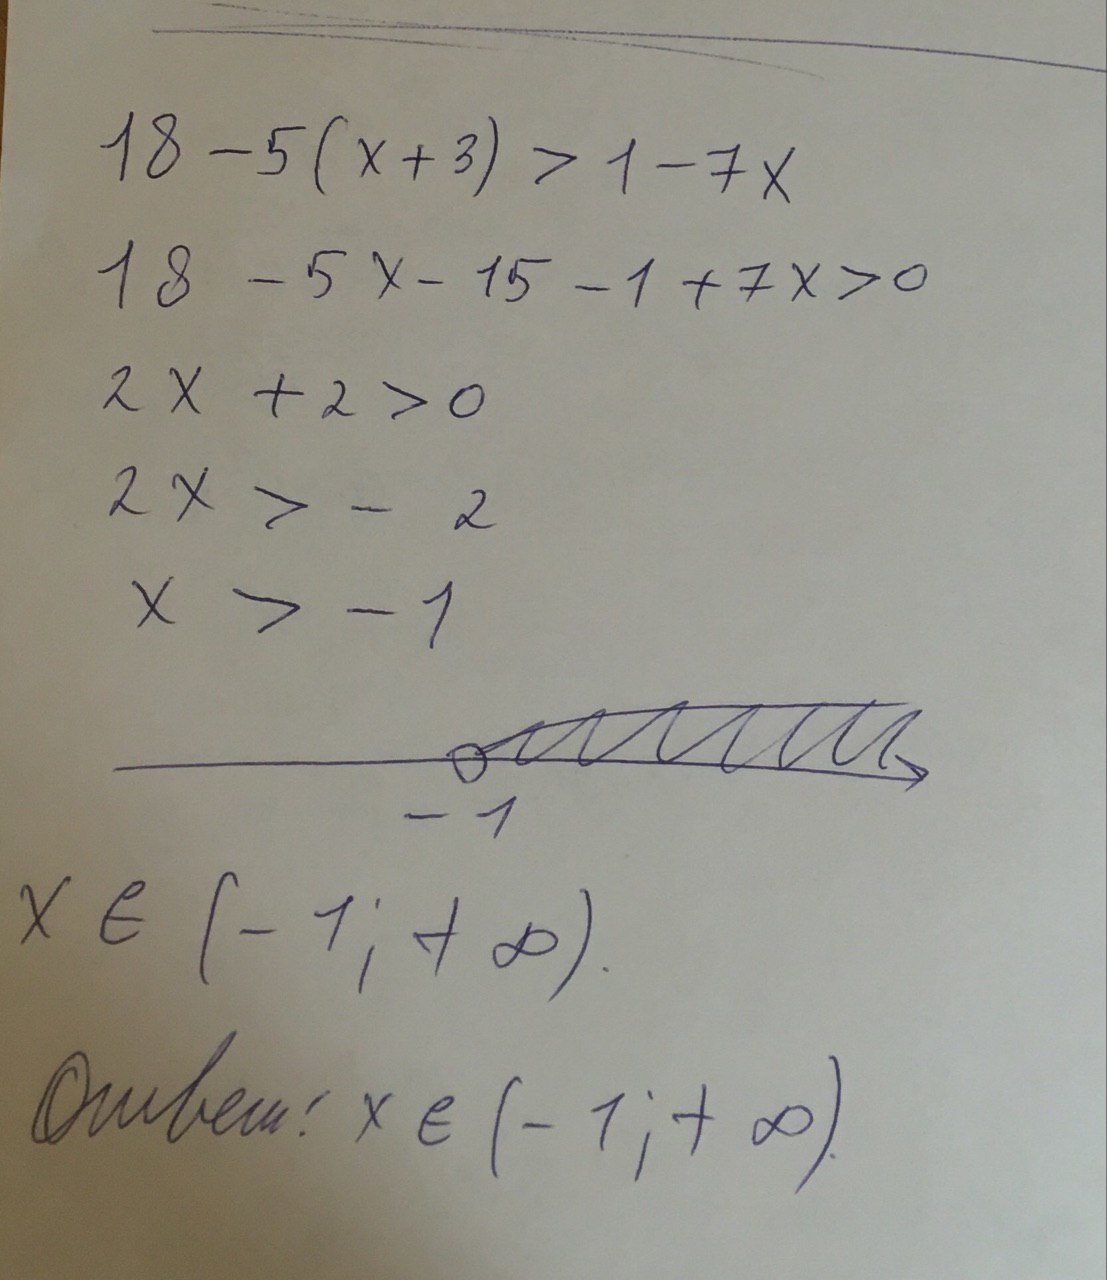 18 - 5(x + 3) > 1 - 7x
18 - 5x - 15 - 1 + 7x > 0
2x + 2 > 0
2x > - 2
x > - 1
- 1
x ∈ (- 1; + ∞).
Ответ: x ∈ (- 1; + ∞).